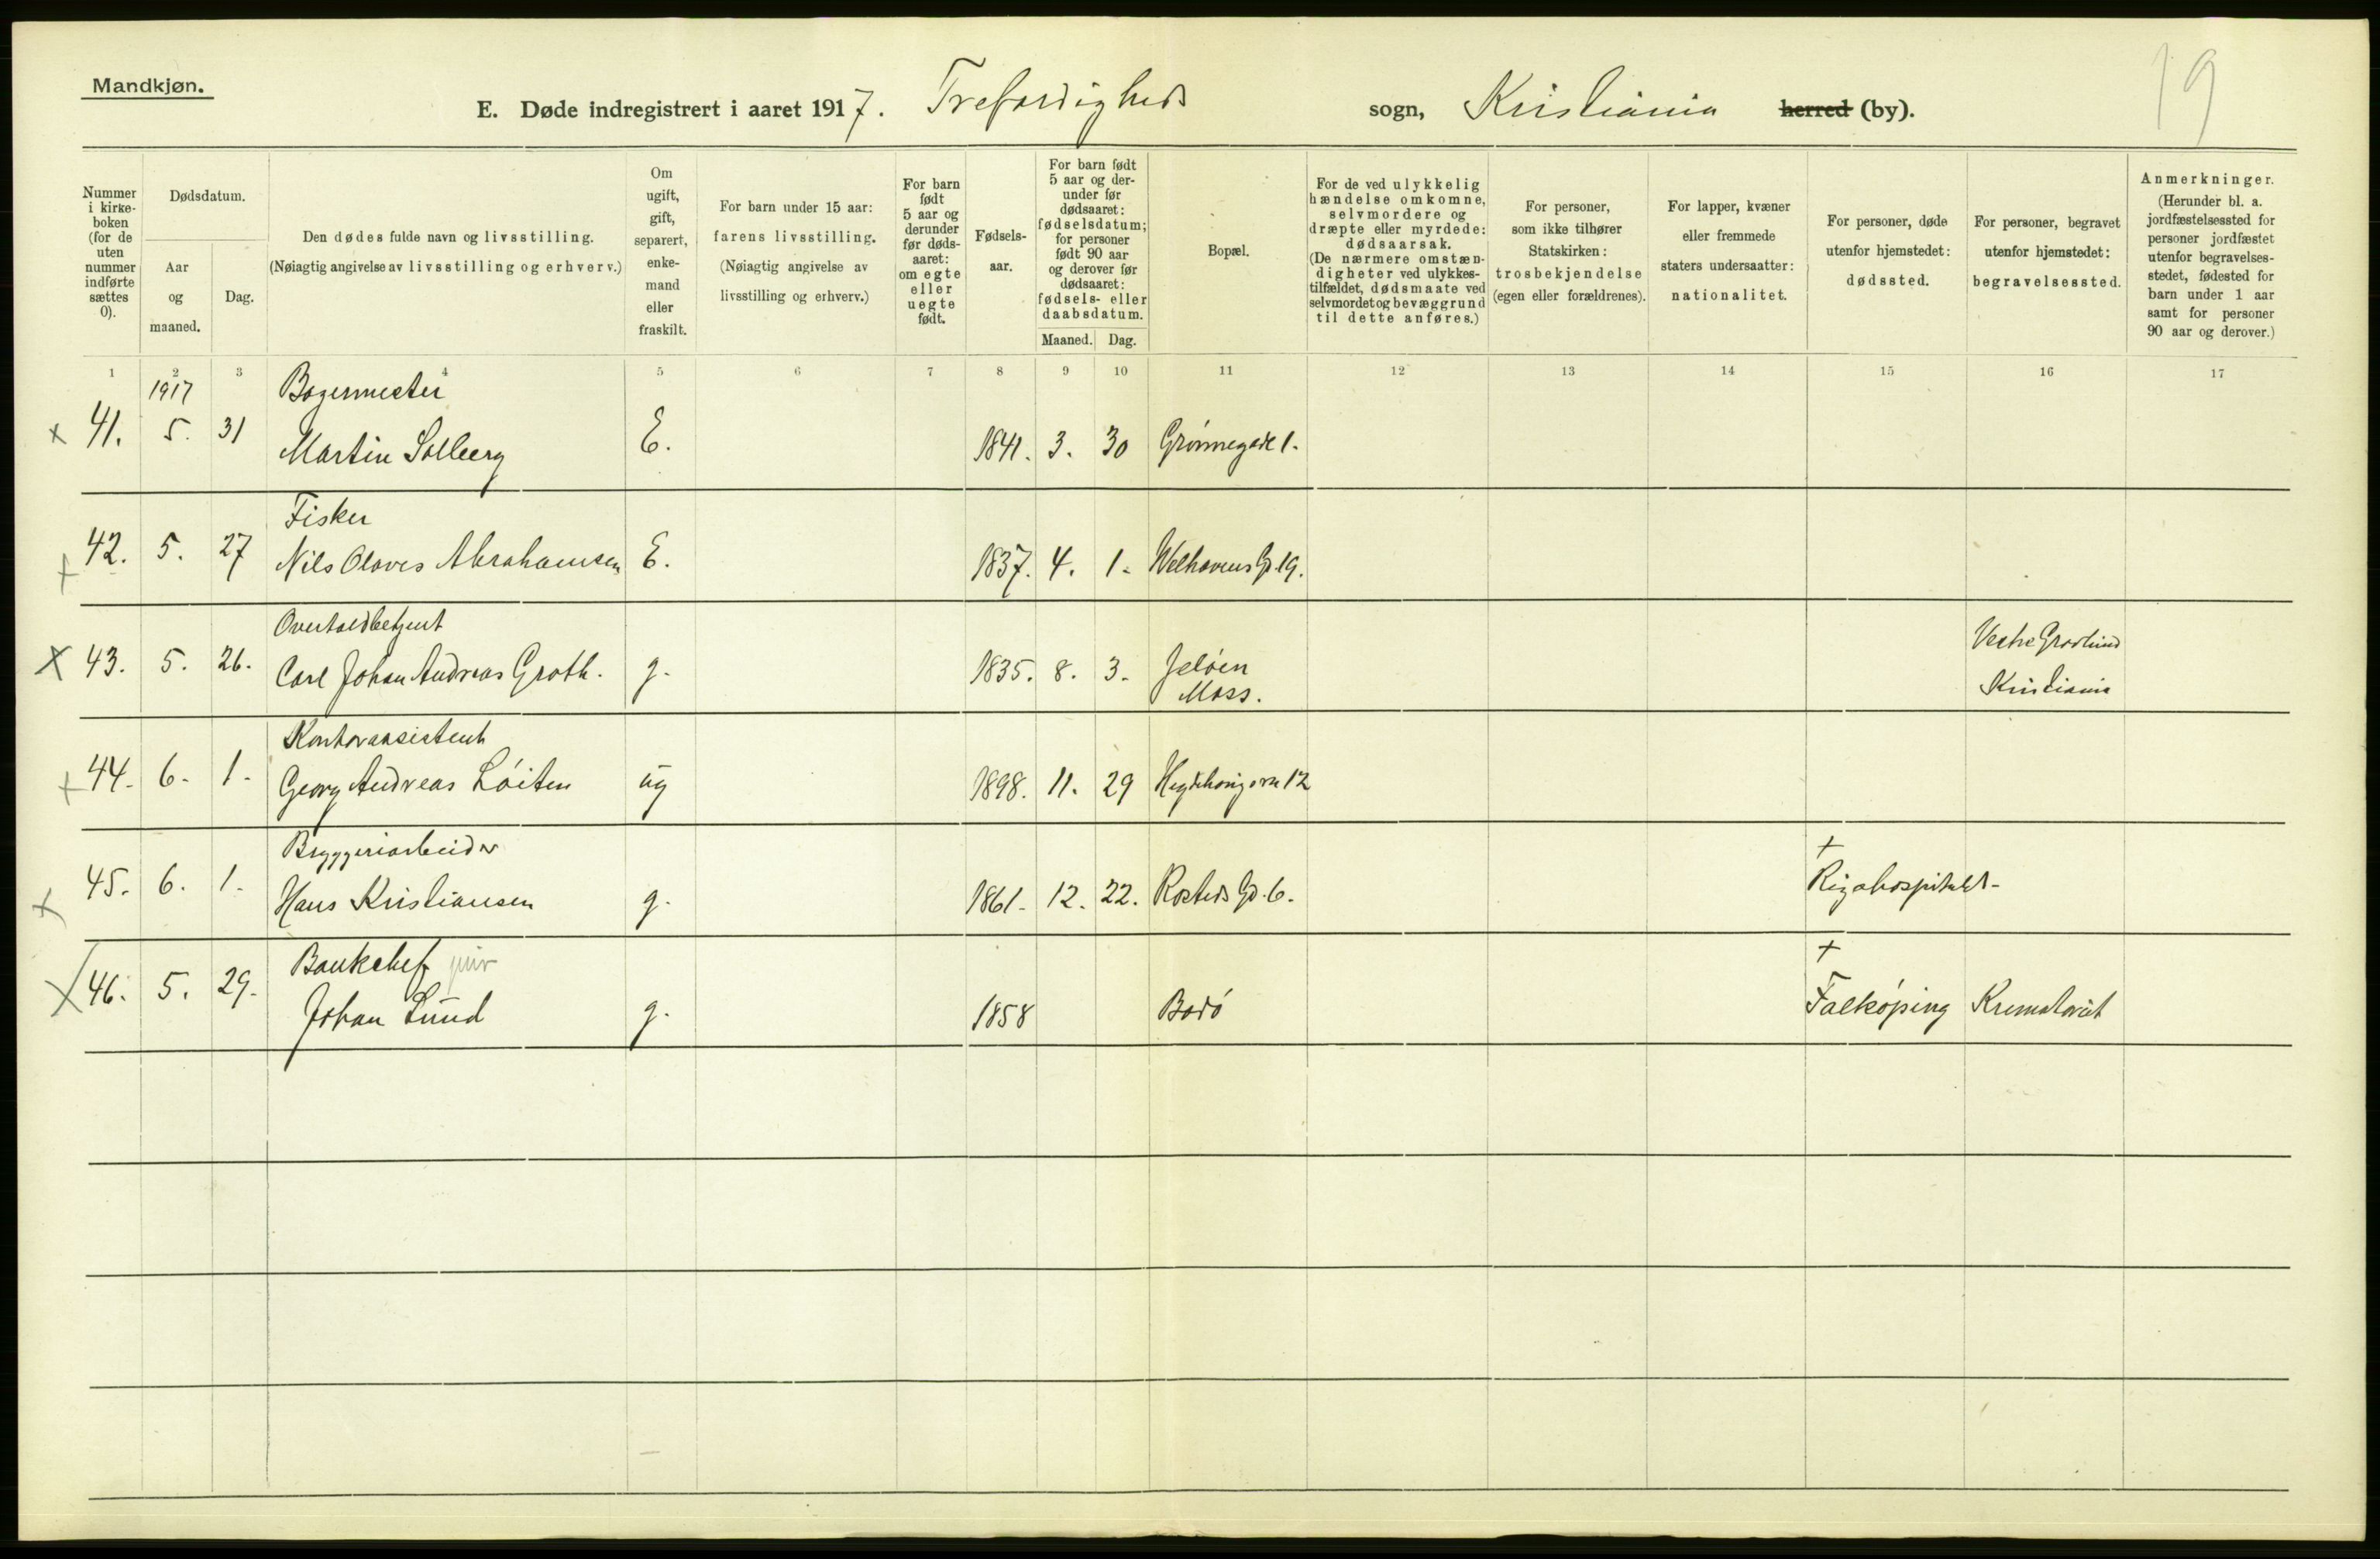 Mandkjøn.
19
E. Døde indregistrert i aaret 1917. Trefoldigheds sogn, Kristiania herred (by).
Nummer i kirke-boken (for de uten nummer indførte sættes 0).
Dødsdatum.
Aar og maaned.
Dag.
Den dødes fulde navn og livsstilling.
(Nøiagtig angivelse av livsstilling og erhverv.)
Om ugift, gift, separert, enke-mand eller fraskilt.
For barn under 15 aar: farens livsstilling.
(Nøiagtig angivelse av livsstilling og erhverv.)
For barn født 5 aar og derunder før døds-aaret: om egte eller uegte født.
Fødsels-aar.
For barn født 5 aar og der-under før dødsaaret: fødselsdatum; for personer født 90 aar og derover før dødsaaret: fødsels- eller daabsdatum.
Maaned. Dag.
Bopæl.
For de ved ulykkelig hændelse omkomne, selvmordere og dræpte eller myrdede: dødsaarsak.
(De nærmere omstæn-digheter ved ulykkes-tilfældet, dødsmaate ved selvmordet og bevæggrund til dette anføres.)
For personer, som ikke tilhører Statskirken: trosbekjendelse (egen eller forældrenes).
For lapper, kvæner eller fremmede staters undersaatter: nationalitet.
For personer, døde utenfor hjemstedet: dødssted.
For personer, begravet utenfor hjemstedet: begravelsessted.
Anmerkninger.
(Herunder bl. a. jordfæstelsessted for personer jordfæstet utenfor begravelses-stedet, fødested for barn under 1 aar samt for personer 90 aar og derover.)
1 2 3 4 5 6 7 8 9 10 11 12 13 14 15 16 17
1917 Bagermester
x 41. 5. 31 Martin Solberg E. 1841. 3. 30 Grønnegade 1.
Fisker
x 42. 5. 27 Nils Olaves Abrahamsen E. 1837. 4. 1. Welhavens Gd. 19.
Overtoldbetjent Vestre Gravlund
x 43. 5. 26. Carl Johan Andreas Groth. g. 1835. 8. 3. Jeløen
Moss. Kristiania
Kontorassistent
x 44. 6. 1. Georg Andreas Løiten ug 1898. 11. 29 Hegdehaugsvn 12
Bryggeriarbeider +
x 45. 6. 1. Hans Kristiansen g. 1861. 12. 22. Rosteds Gd. 6. Rigshospitalet-
Bankchef priv +
x 46. 5. 29. Johan Lund g. 1858 Bodø Falkøping Krematoriet